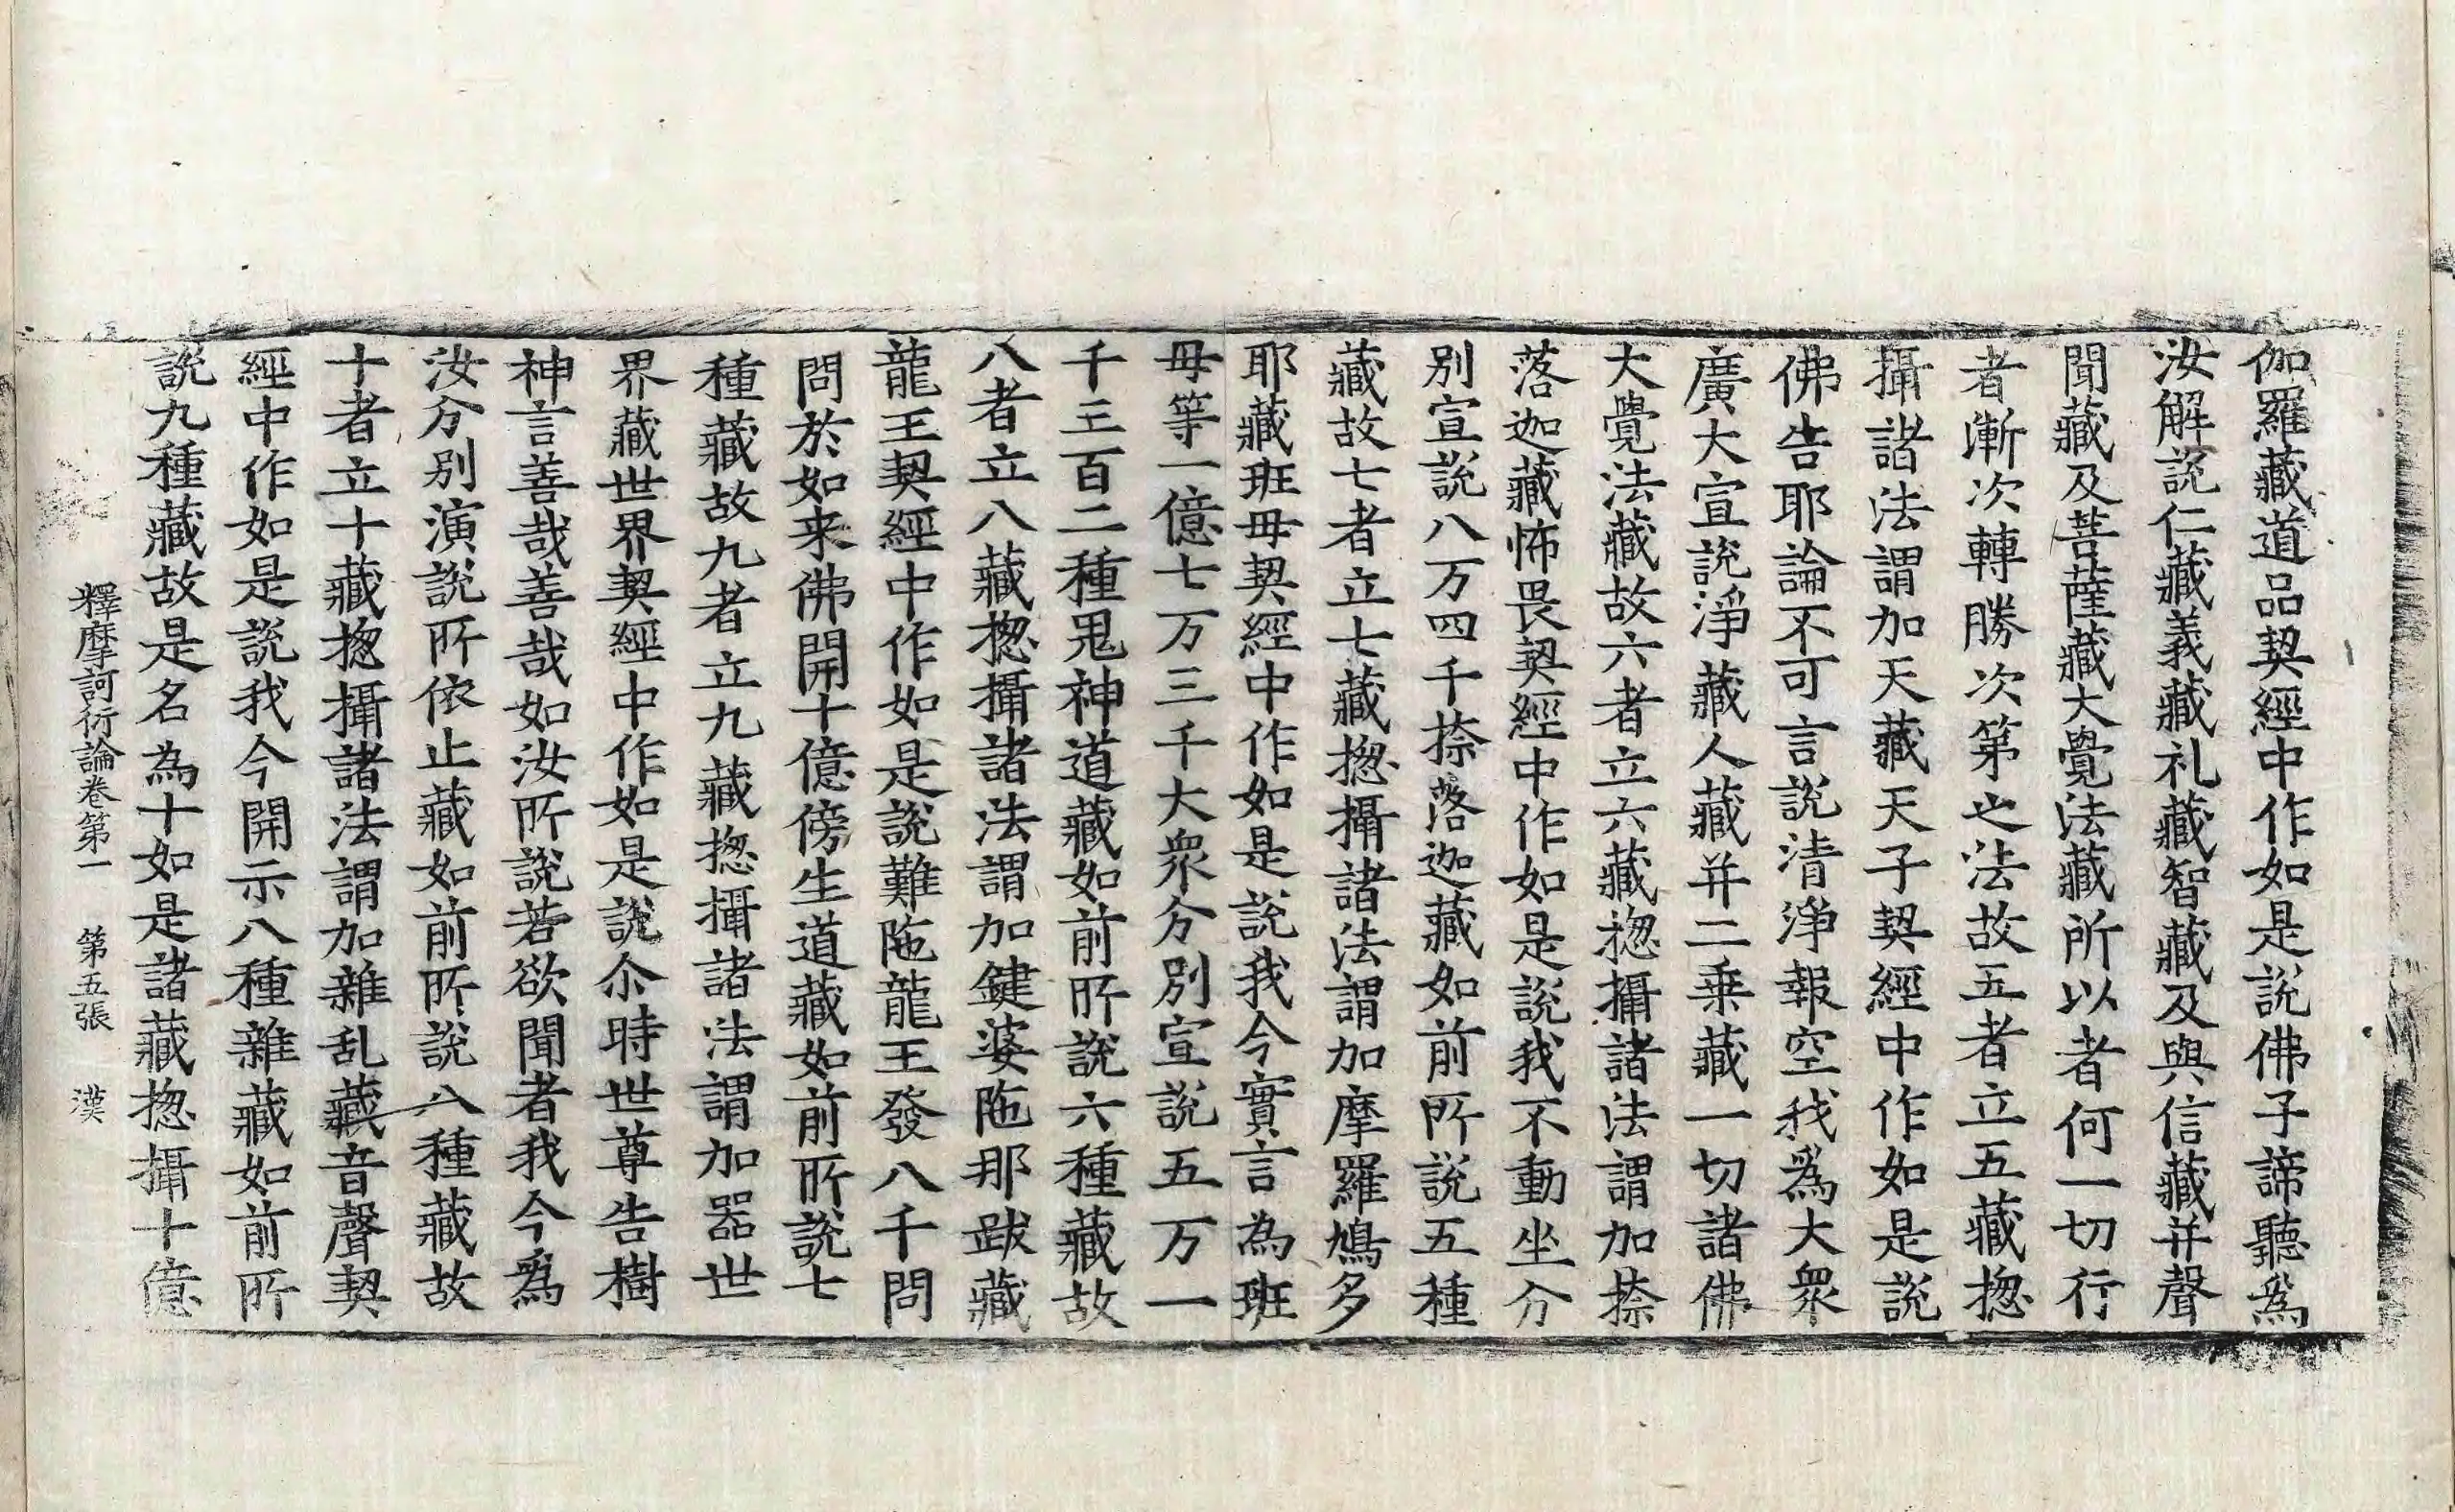 伽羅藏道品契經中作如是說佛子諦聽爲
汝解說仁藏義藏礼藏智藏及與信藏并聲
聞藏及菩薩藏大覺法藏所以者何一切行
者漸次轉勝次第之法故五者立五藏揔
攝諸法謂加天藏天子契經中作如是說
佛告耶論不可言說清淨報空我爲大衆
廣大宣說淨藏人藏并二乗藏一切諸佛
大覺法藏故六者立六藏揔攝諸法謂加捺
落迦藏怖畏契經中作如是說我不動坐分
别宣說八万四千捺落迦藏如前所說五種
藏故七者立七藏揔攝諸法謂加摩羅鳩多
耶藏班毋契經中作如是說我今實言為班
毋等一億七万三千大衆分別宣說五万一
千三百二種鬼神道藏如前所說六種藏故
八者立八藏揔攝諸法謂加鍵婆陁那跋藏
龍王契經中作如是說難陁龍王發八千問
問於如来佛開十億傍生道藏如前所說七
種藏故九者立九藏揔攝諸法謂加器世
界藏世界契經中作如是說尒時世尊告樹
神言善哉善哉如汝所說若欲聞者我今爲
汝分別演說所依止藏如前所說八種藏故
十者立十藏揔攝諸法謂加雜乱藏音聲契
經中作如是說我今開示八種雜藏如前所
說九種藏故是名為十如是諸藏揔攝十億
釋摩訶衍論卷第一 第五張 漢